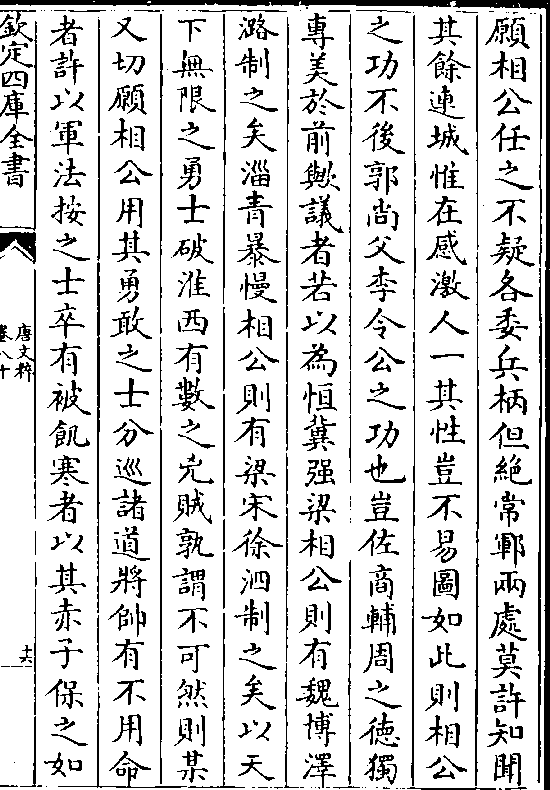 願相公任之不疑各委兵柄但絶常鄆兩處莫許知聞
其餘連城惟在感激人一其性豈不易圖如此則相公
之功不後郭尚父李令公之功也豈佐商輔周之徳獨
專美於前歟議者若以為恒冀强梁相公則有魏博澤
潞制之矣淄青暴慢相公則有梁宋徐泗制之矣以天
下無限之勇士破淮西有數之兇賊孰謂不可然則某
又切願相公用其勇敢之士分廵諸道將帥有不用命
者許以軍法按之士卒有被飢寒者以其赤子保之如
欽定四庫全書
唐文粹
卷八十
十六